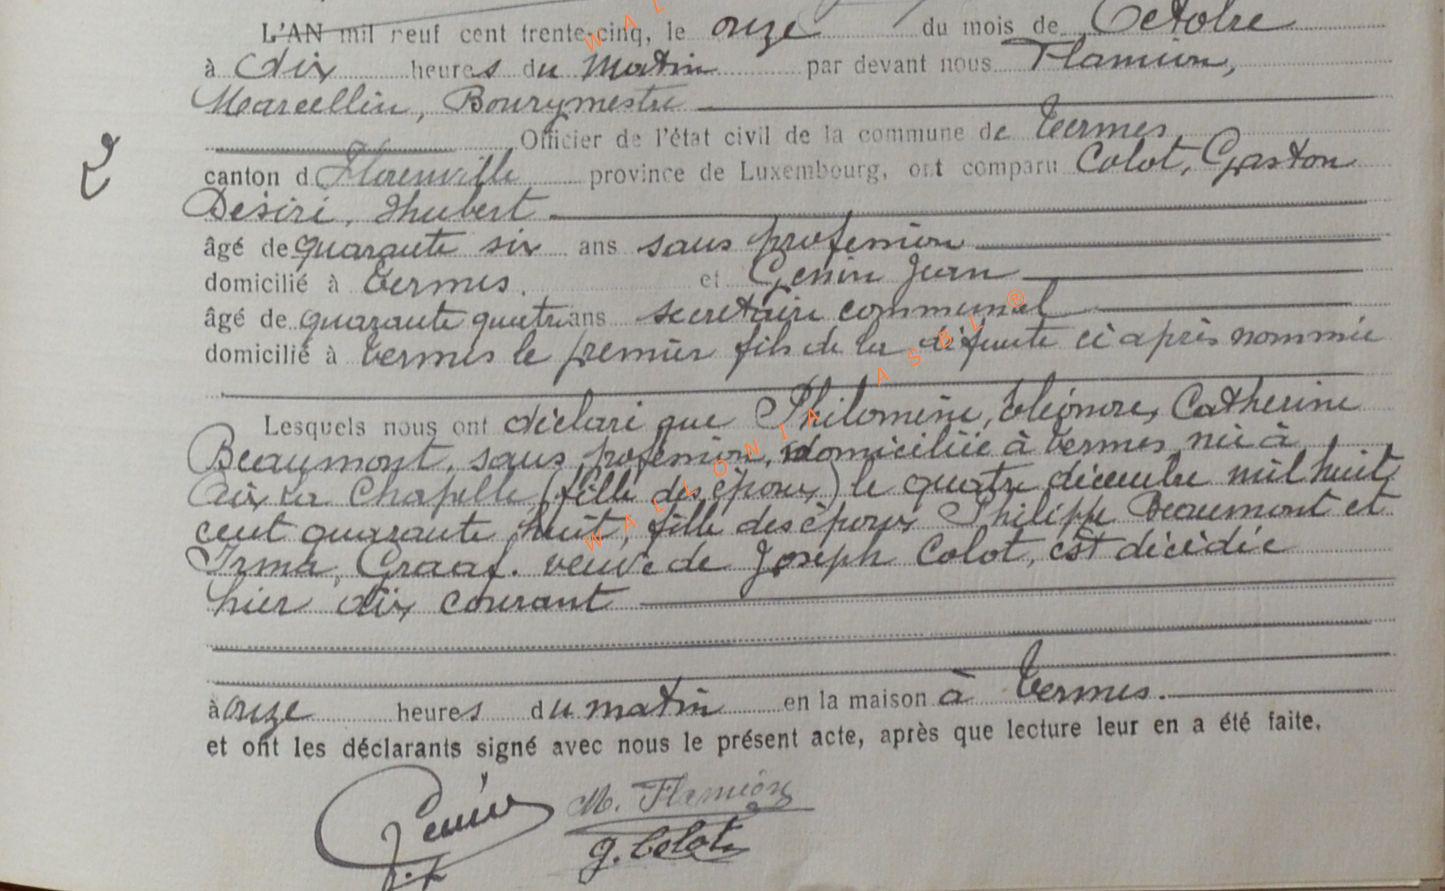 L'AN mil neuf cent trente-cinq, le onze du mois de Octobre
à dix heures du matin par devant nous Flamion,
Marcellin, Bourgmestre
Officier de l'état civil de la commune de Termes
canton d Florenville province de Luxembourg, ont comparu Colot, Gaston
Désiré, Hubert
âgé de quarante six ans sans profession
domicilié à Termes. et Genin Jean
âgé de quarante quatre ans secrétaire communal
domicilié à Termes le premier fils de la défunte ci après nommée
Lesquels nous ont déclaré que Philomène, Eléonore, Catherine
Beaumont, sans profession, domiciliée à Termes née à
Aix la Chapelle (fille des époux) le quatre décembre mil huit
cent quarante huit, fille des époux Philippe Beaumont et
Irma, Graaf. veuve de Joseph Colot, est décédée
hier dix courant
à onze heures du matin en la maison à Termes.
et ont les déclarants signé avec nous le présent acte, après que lecture leur en a été faite.
Genin M. Flamion
g. Colot
WALLONIA ASBL®